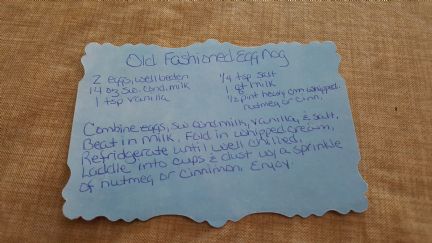 Old Fashioned Egg Nog
2 eggs, well beaten
14 oz sw. cond. milk
1 tsp vanilla
1/4 tsp salt
1 qt milk
1/2 pint heavy crm whipped
nutmeg or cinn.
Combine eggs, sw cond. milk, vanilla, & salt.
Beat in milk. Fold in whipped cream,
Refridgerate until well chilled.
Laddle into cups & dust w/ a sprinkle
of nutmeg or cinnimon. Enjoy